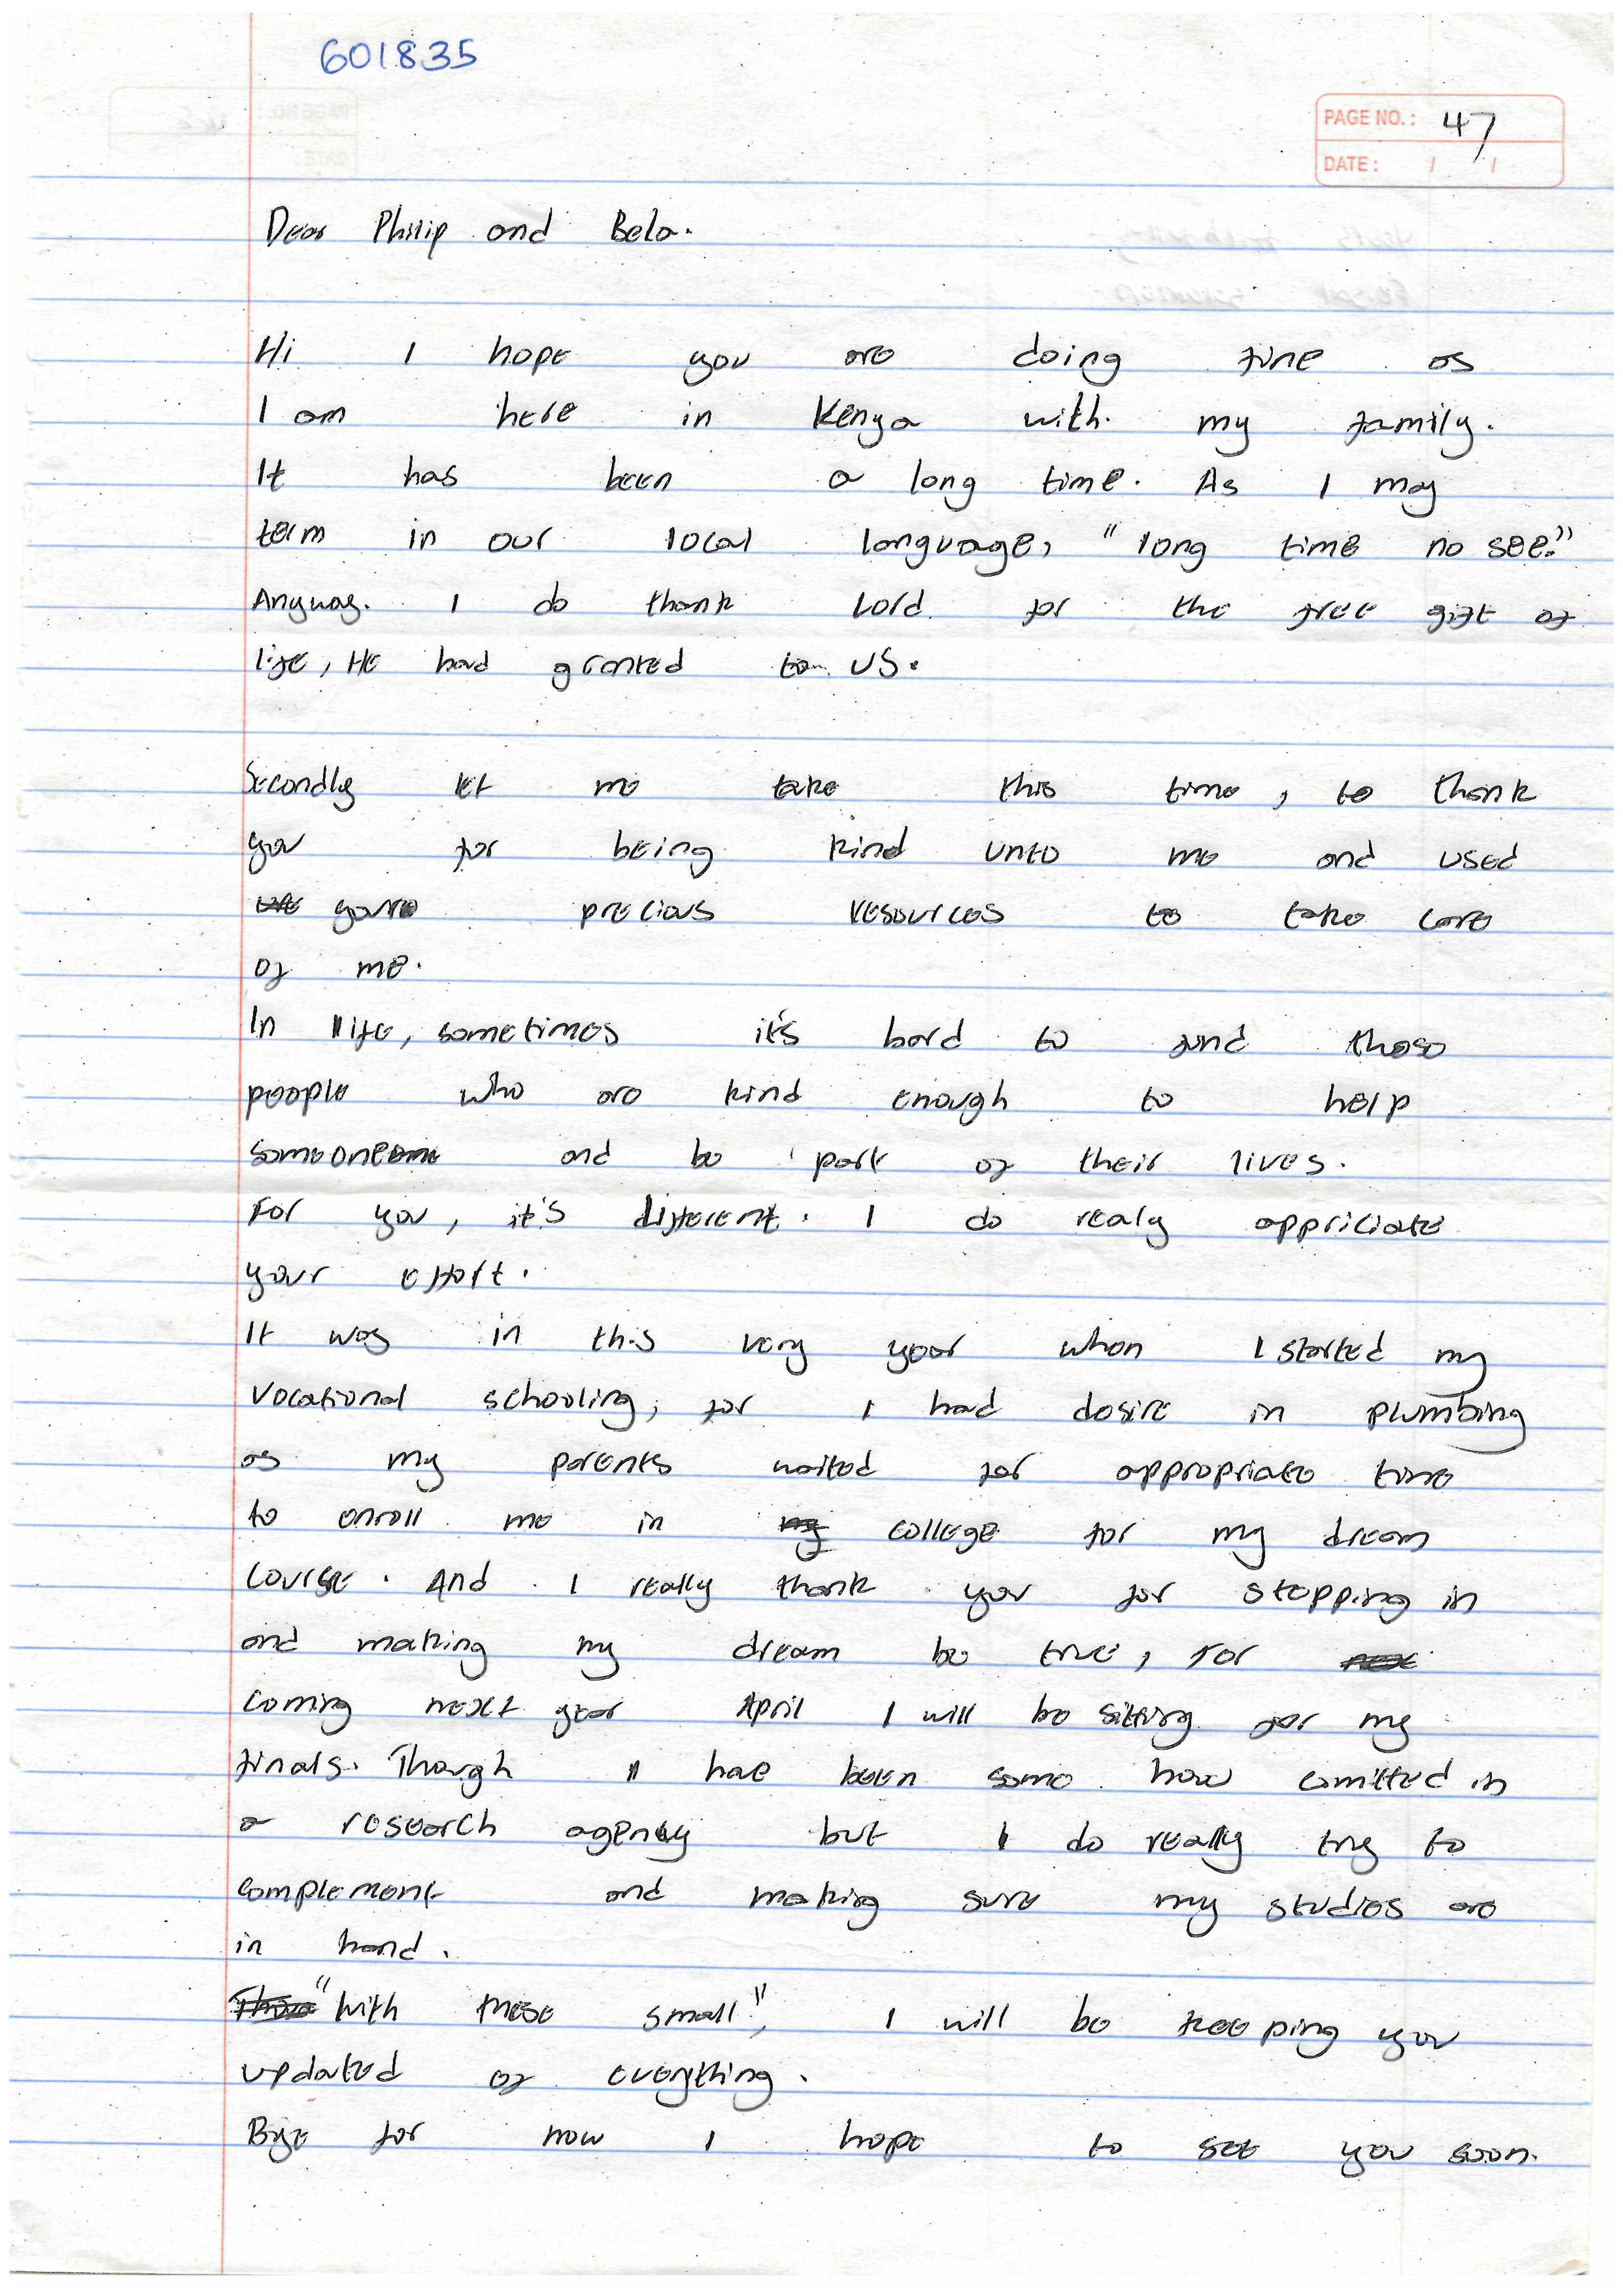 601835
PAGE NO.: 47
DATE: / /
Dear Philip and Bela.
Hi I hope you are doing fine as
I am here in Kenya with my family.
It has been a long time. As I may
term in our local language, "long time no see."
Anyway. I do thank Lord for the free gift of
life, He had granted to us.
Secondly let me take this time, to thank
you for being kind unto me and used
youre precious resources to take care
of me.
In life, sometimes it's hard to find those
people who are kind enough to help
someone and be part of their lives.
For you, it's different. I do realy appriciate
your effort.
It was in this very year when I started my
vocational schooling, for I had desire in plumbing
as my parents waited for appropriate time
to enroll me in college for my dream
course. And I really thank you for stepping in
and making my dream be true, for
coming next year April I will be sitting for my
finals. Though I hae been some how comitted in
a research agency but I do really try to
complement and making sure my studies are
in hand.
"With these small", I will be keeping you
updated of everything.
Bye for now I hope to see you soon.